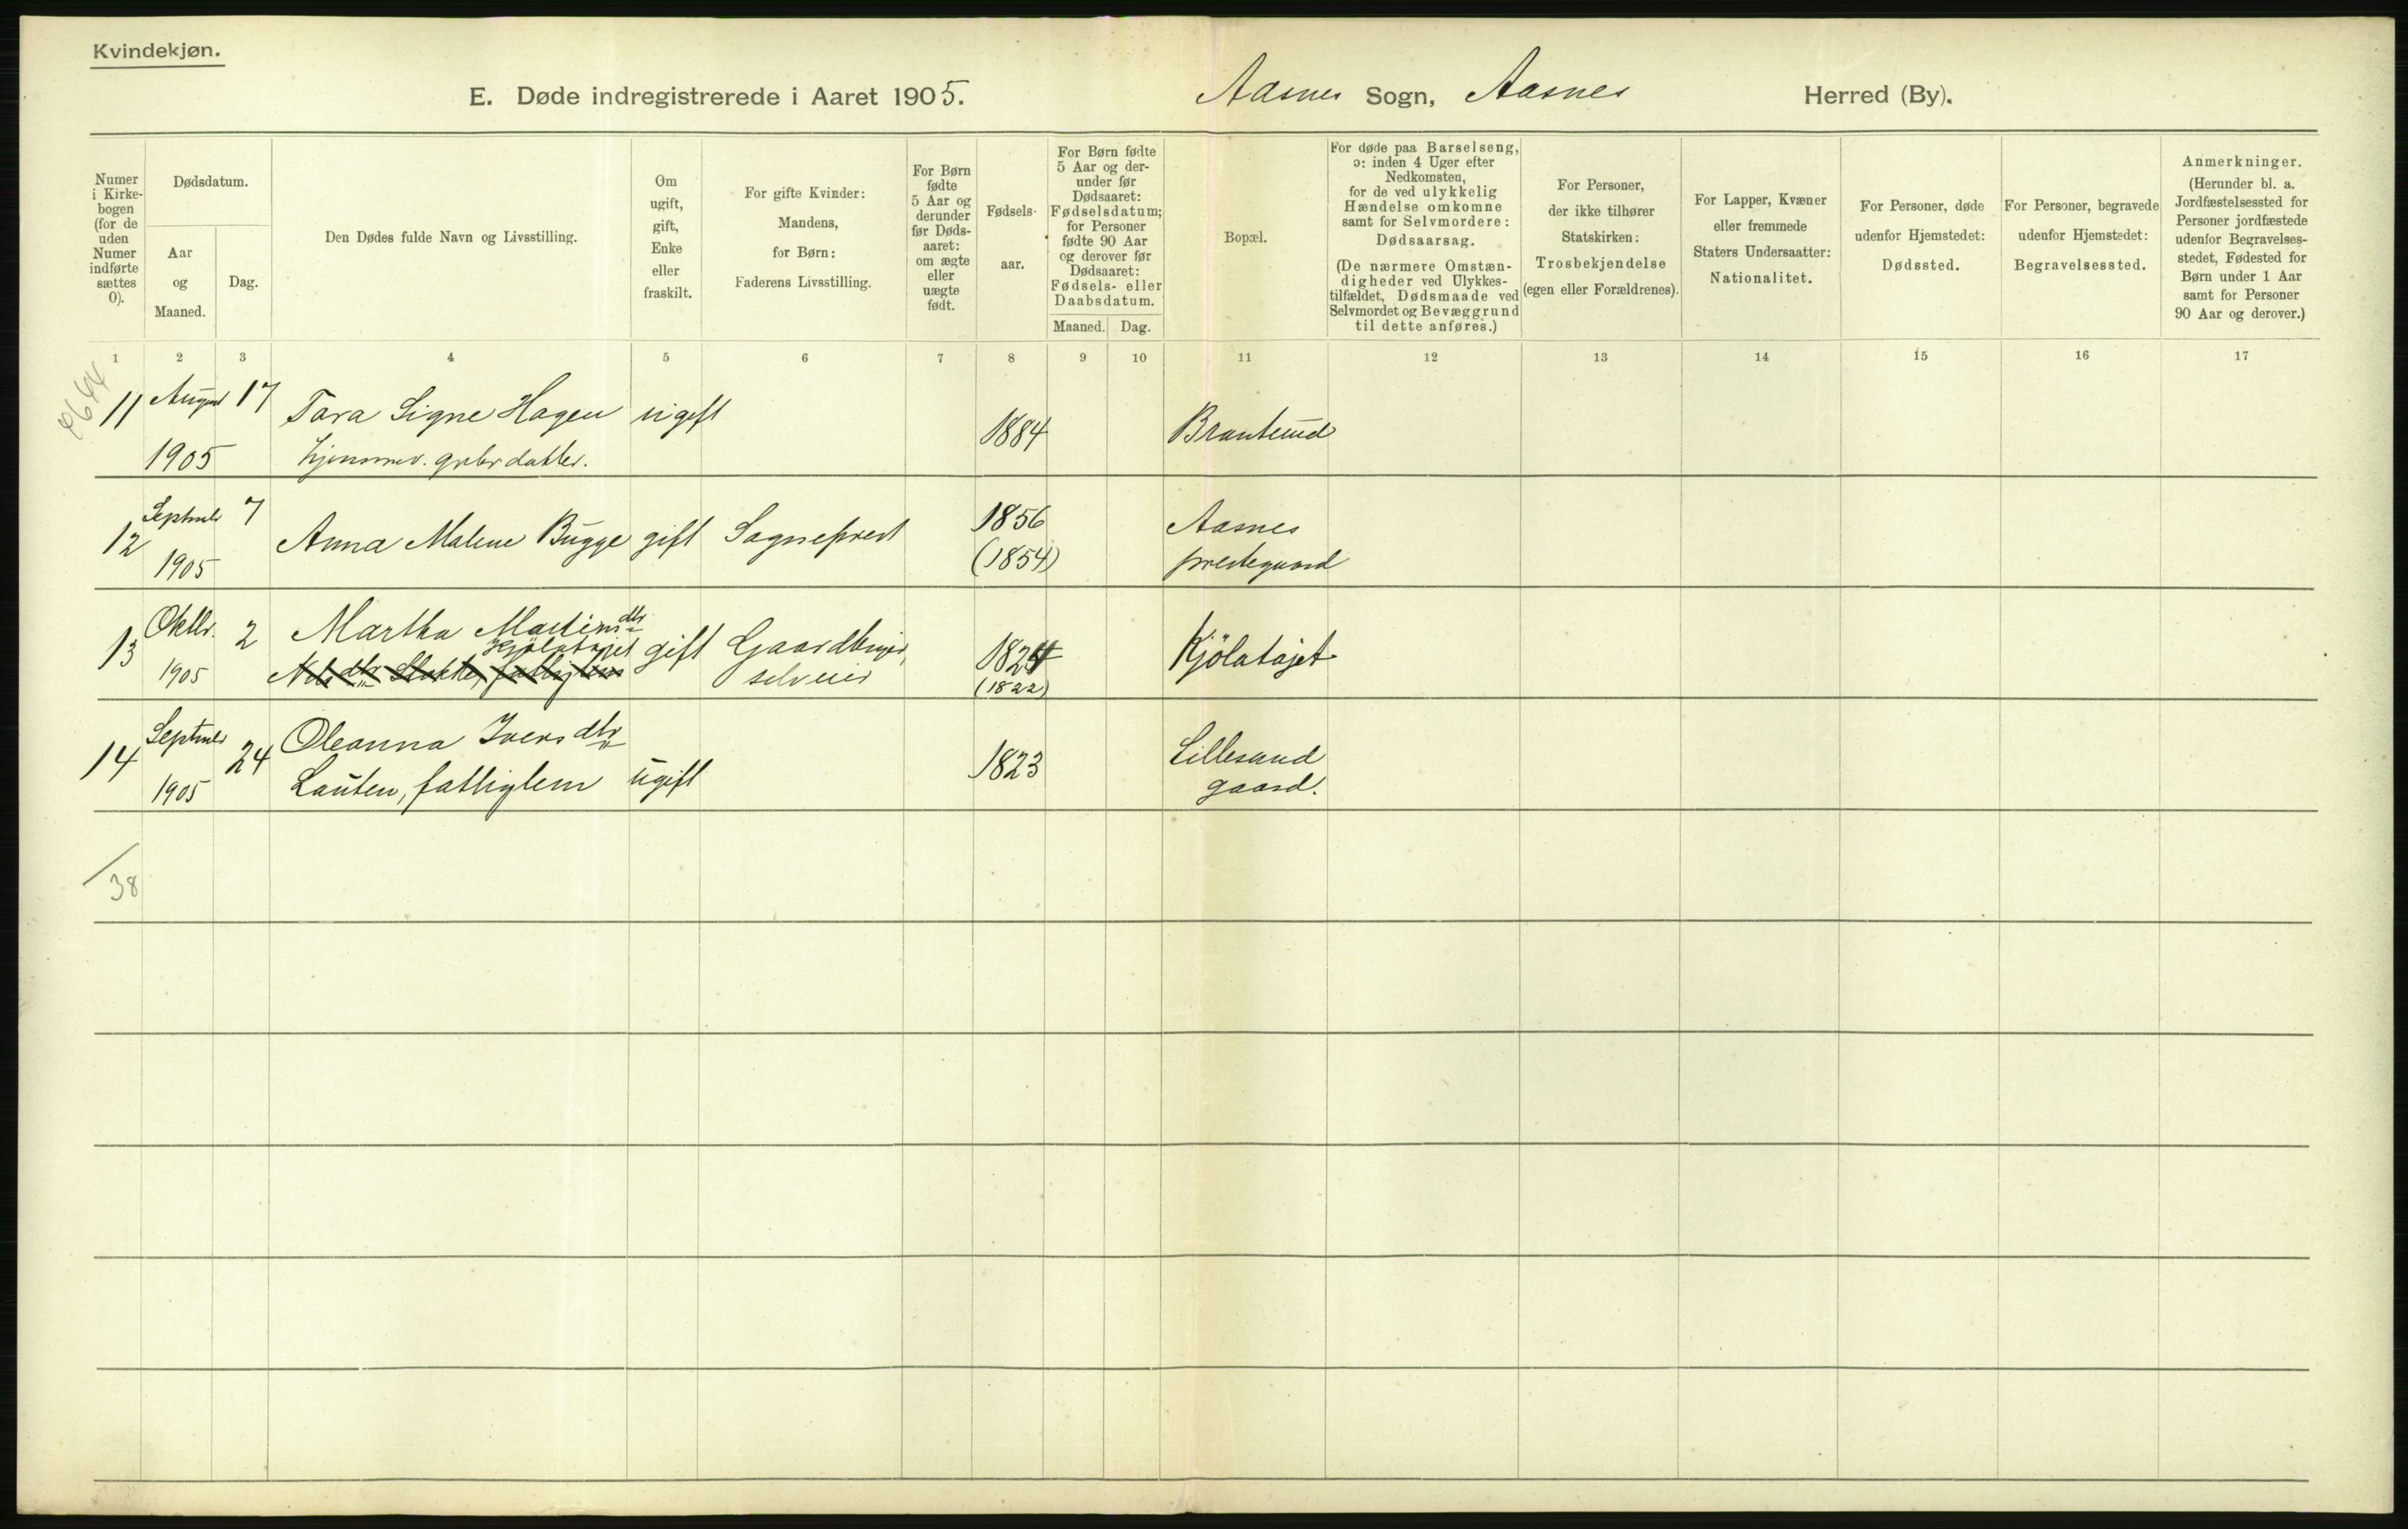 Kvindekjøn.
E. Døde indregistrerede i Aaret 1905. Aasnes Sogn, Aasnes Herred (By).
Numer i Kirkebogen (for de uden Numer indførte sættes 0).
Dødsdatum.
Aar og Maaned.
Dag.
Den Dødes fulde Navn og Livsstilling.
Om ugift, gift, Enke eller fraskilt.
For gifte Kvinder: Mandens, for Børn: Faderens Livsstilling.
For Børn fødte 5 Aar og derunder før Dødsaaret: om ægte eller uægte født.
Fødselsaar.
For Børn fødte 5 Aar og derunder før Dødsaaret: Fødselsdatum; for Personer fødte 90 Aar og derover før Dødsaaret: Fødsels- eller Daabsdatum.
Maaned. Dag.
Bopæl.
For døde paa Barselseng, ɔ: inden 4 Uger efter Nedkomsten, for de ved ulykkelig Hændelse omkomne samt for Selvmordere: Dødsaarsag.
(De nærmere Omstændigheder ved Ulykkestilfældet, Dødsmaade ved Selvmordet og Bevæggrund til dette anføres.)
For Personer, der ikke tilhører Statskirken: Trosbekjendelse (egen eller Forældrenes).
For Lapper, Kvæner eller fremmede Staters Undersaatter: Nationalitet.
For Personer, døde udenfor Hjemstedet: Dødssted.
For Personer, begravede udenfor Hjemstedet: Begravelsessted.
Anmerkninger. (Herunder bl. a. Jordfæstelsessted for Personer jordfæstede udenfor Begravelsesstedet, Fødested for Børn under 1 Aar samt for Personer 90 Aar og derover.)
1 2 3 4 5 6 7 8 9 10 11 12 13 14 15 16 17
11 August 17 Tara Signe Hagen ugift 1884
1905
12 Septmbr 7 Anna Malene Bugge gift Sogneprest 1856 Aasnes
1905 (1854) prestegaard
13 Oktbr. 2 Martha Martinsdtr gift Gaardbruger, 1824 Kjölatajet
Kjölatajet
1905 selveier (1822)
14 Septmbr 24 Oleanna Iversdtr 1823 Lillesand
1905 Lauten, fattiglem ugift gaard.
38